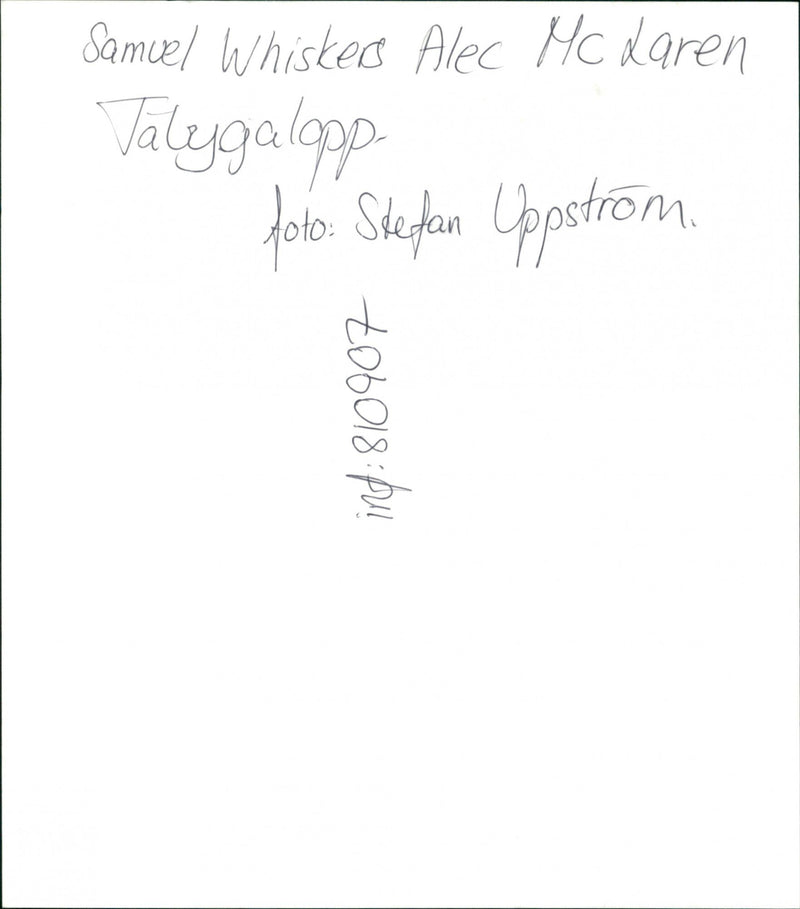 Samuel Whiskers Alec McLaren
Täbygalopp-
foto: Stefan Uppström.
inf: 810907